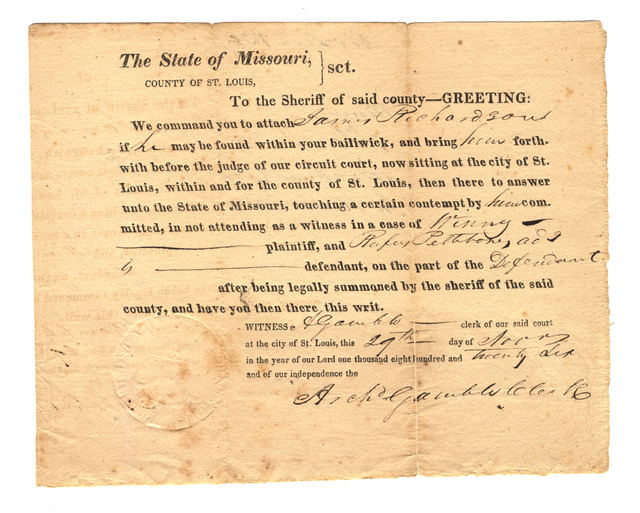 The State of Missouri,
COUNTY OF ST. LOUIS, } sct.
To the Sheriff of said county—GREETING:
We command you to attach James Richardson
if he may be found within your bailiwick, and bring him forth-
with before the judge of our circuit court, now sitting at the city of St.
Louis, within and for the county of St. Louis, then there to answer
unto the State of Missouri, touching a certain contempt by him com-
mitted, in not attending as a witness in a case of Winny
plaintiff, and Rufus Pettibone,
defendant, on the part of the Defendant
after being legally summoned by the sheriff of the said
county, and have you then there this writ.
WITNESS A Gamble clerk of our said court
at the city of St. Louis, this 29th day of Novr
in the year of our Lord one thousand eight hundred and twenty six
and of our independence the
Archd Gamble Clerk